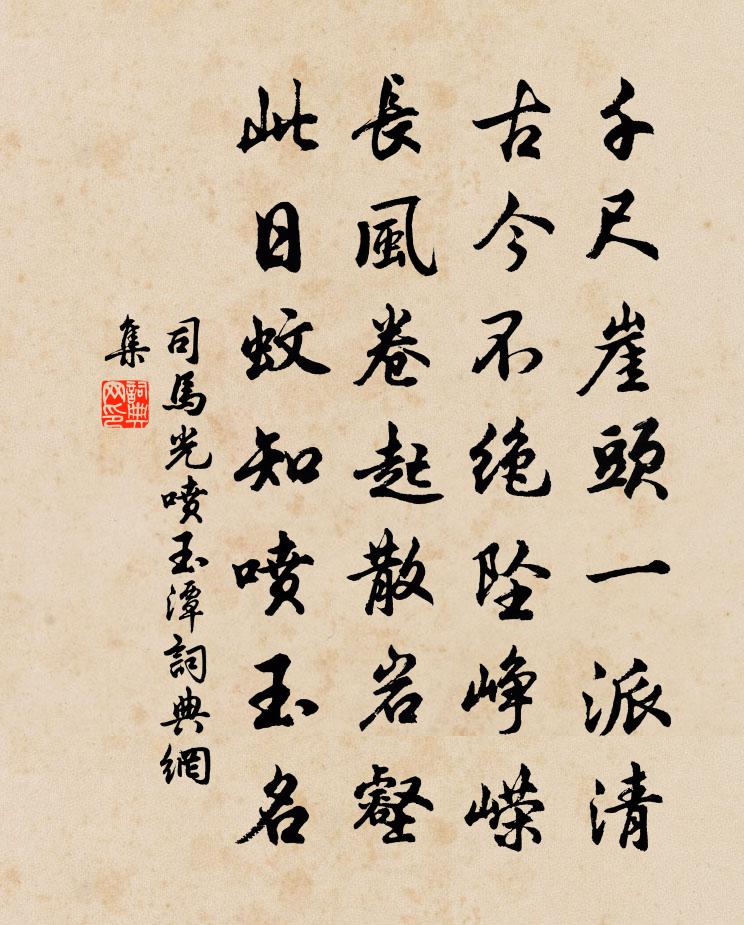 千尺崖頭一派清
古今不绝坠峥嵘
長風卷起散岩壑
此日蚊知噴玉名
司馬光噴玉潭詞典網
集
詞典
网印